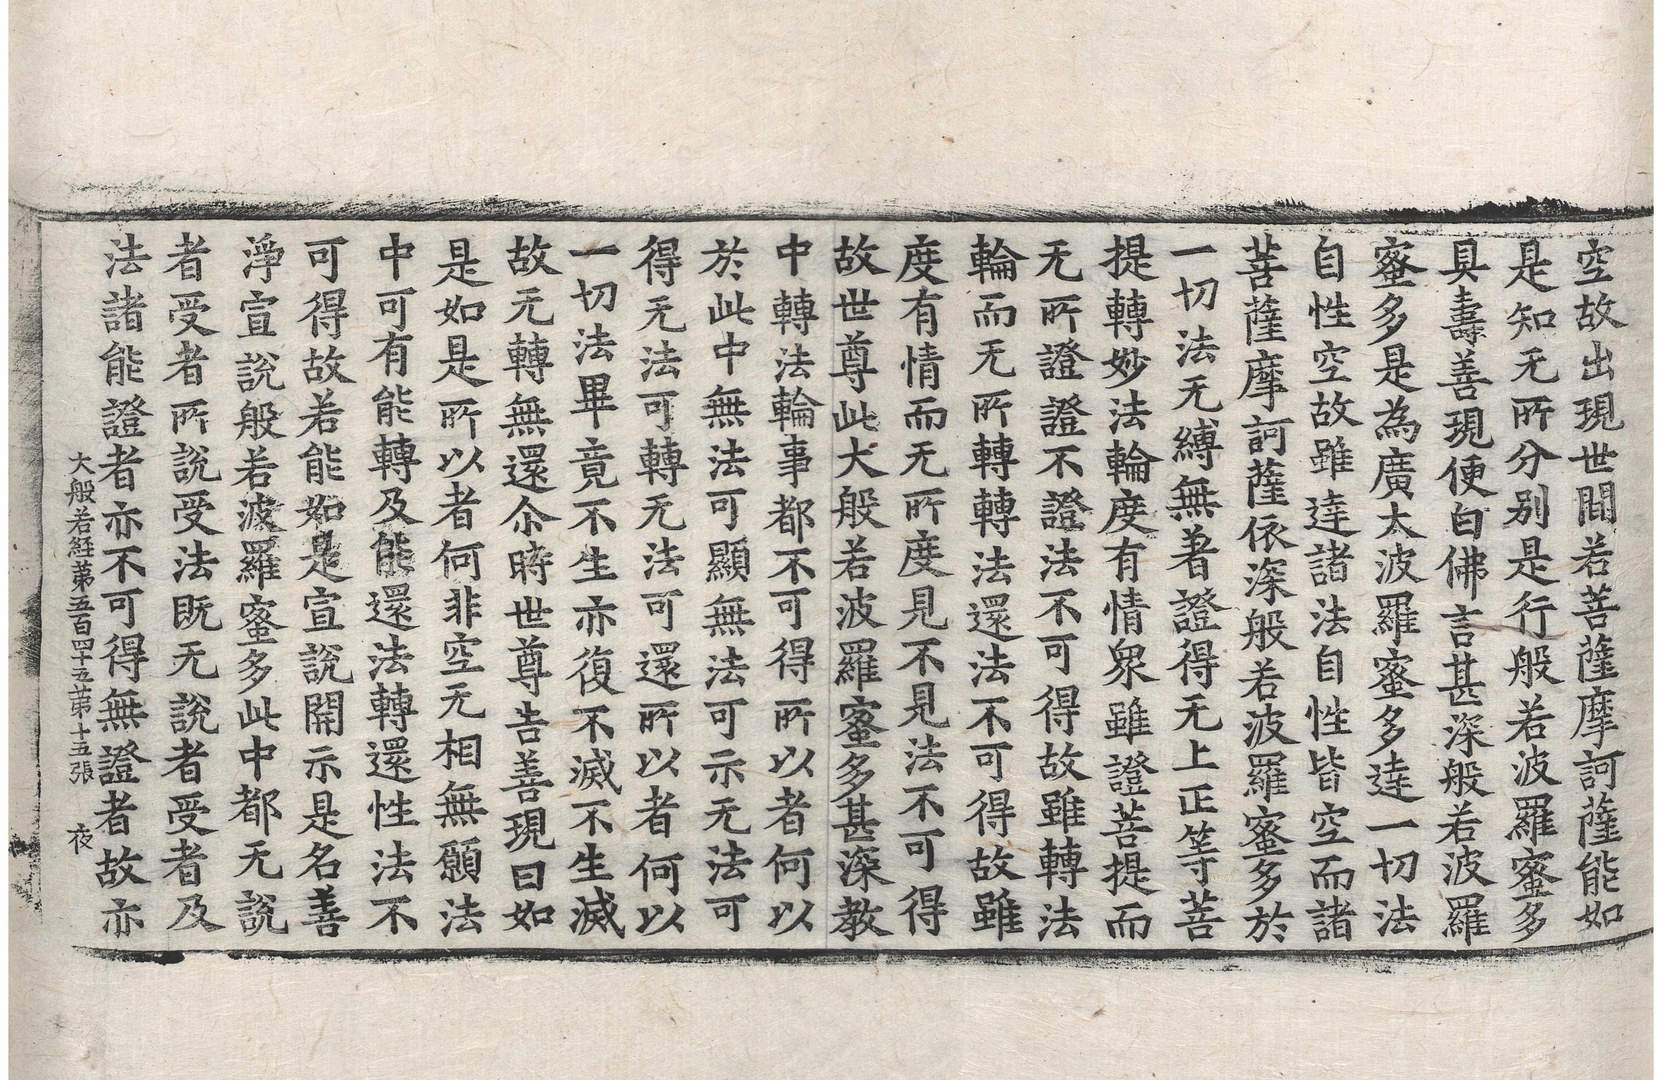 空故出現世間若菩薩摩訶薩能如
是知无所分别是行般若波羅蜜多
具壽善現便白佛言甚深般若波羅
蜜多是為廣大波羅蜜多達一切法
自性空故雖達諸法自性皆空而諸
菩薩摩訶薩依深般若波羅蜜多於
一切法无縛無著證得无上正等菩
提轉妙法輪度有情衆雖證菩提而
无所證證不證法不可得故雖轉法
輪而无所轉轉法還法不可得故雖
度有情而无所度見不見法不可得
故世尊此大般若波羅蜜多甚深教
中轉法輪事都不可得所以者何以
於此中無法可顯無法可示无法可
得无法可轉无法可還所以者何以
一切法畢竟不生亦復不滅不生滅
故无轉無還尒時世尊告善現曰如
是如是所以者何非空无相無願法
中可有能轉及能還法轉還性法不
可得故若能如是宣說開示是名善
淨宣說般若波羅蜜多此中都无說
者受者所說受法既无說者受者及
法諸能證者亦不可得無證者故亦
大般若経苐五百四十五苐十五張 夜